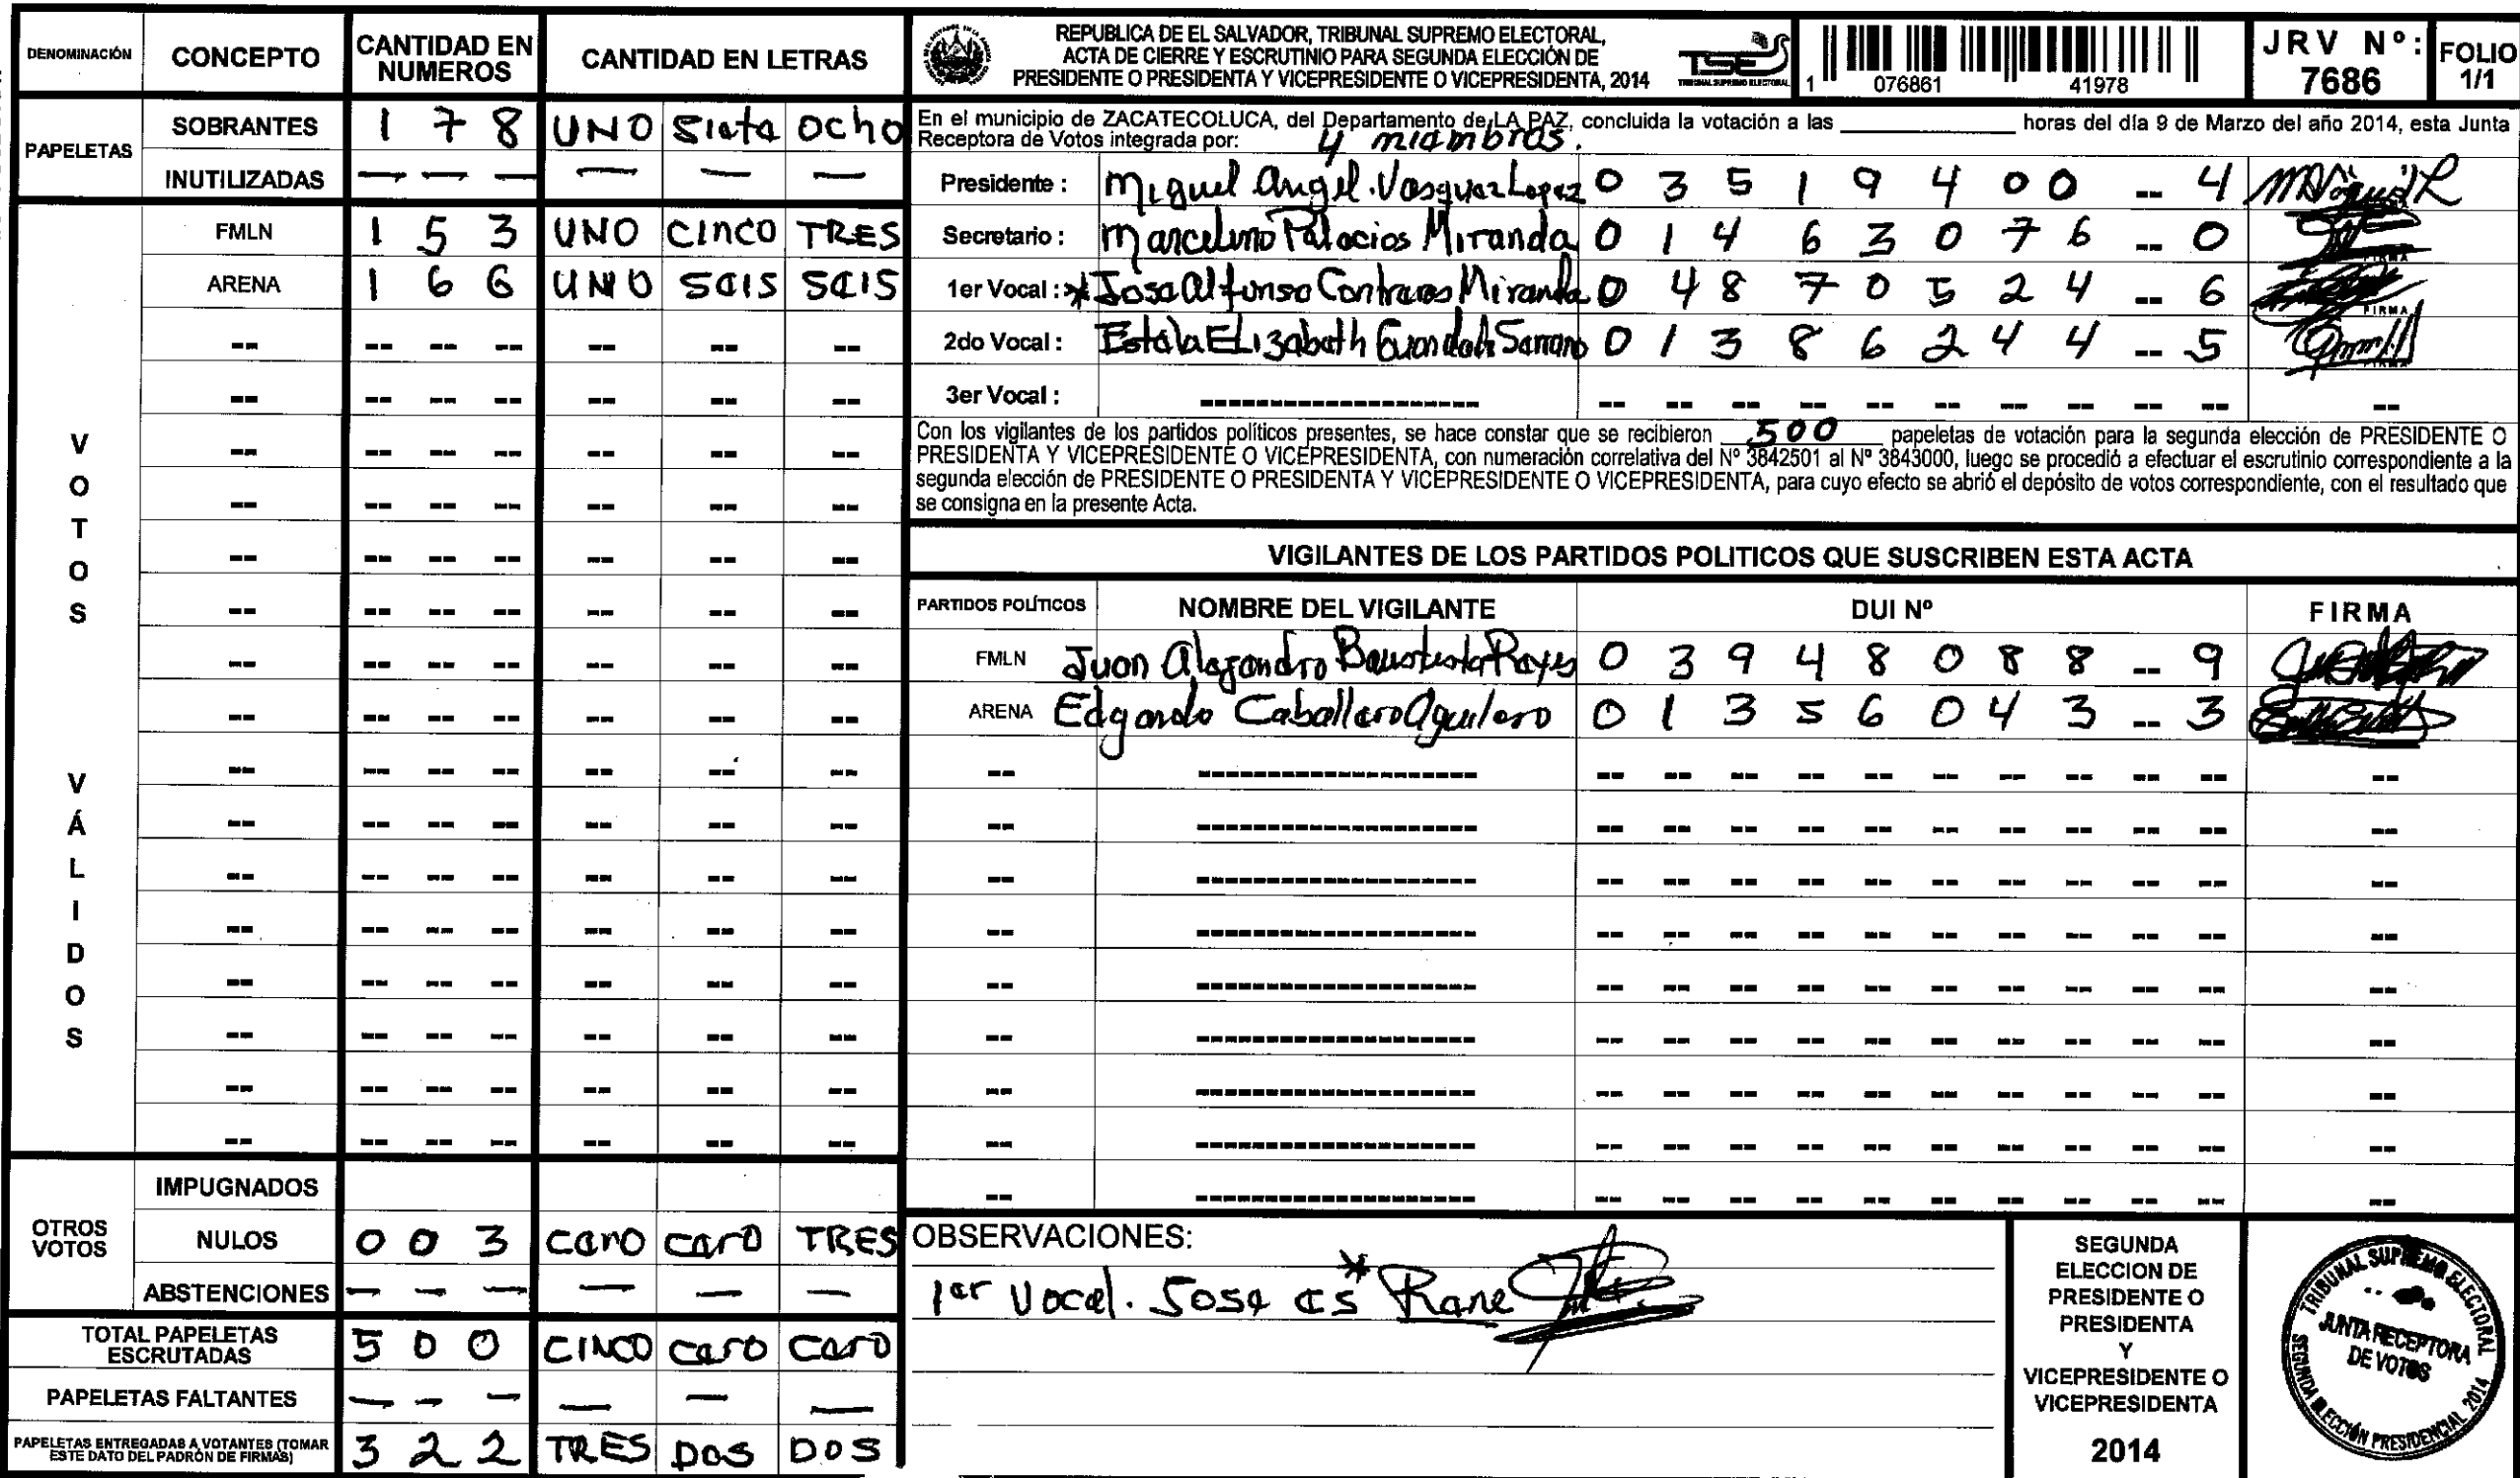 DENOMINACIÓN CONCEPTO CANTIDAD EN NUMEROS CANTIDAD EN LETRAS
PAPELETAS
SOBRANTES 1 7 8 UNO Siete Ocho
INUTILIZADAS — — — — — —
VOTOS VÁLIDOS
FMLN 1 5 3 UNO CINCO TRES
ARENA 1 6 6 UNO SEIS SEIS
OTROS VOTOS
IMPUGNADOS
NULOS 0 0 3 cero cero TRES
ABSTENCIONES — — — — — —
TOTAL PAPELETAS ESCRUTADAS 5 0 0 CINCO cero cero
PAPELETAS FALTANTES — — — — — —
PAPELETAS ENTREGADAS A VOTANTES (TOMAR ESTE DATO DEL PADRÓN DE FIRMAS) 3 2 2 TRES DOS DOS
REPUBLICA DE EL SALVADOR, TRIBUNAL SUPREMO ELECTORAL,
ACTA DE CIERRE Y ESCRUTINIO PARA SEGUNDA ELECCIÓN DE
PRESIDENTE O PRESIDENTA Y VICEPRESIDENTE O VICEPRESIDENTA, 2014
TSE
TRIBUNAL SUPREMO ELECTORAL
1 076861 41978
JRV Nº: 7686
FOLIO 1/1
En el municipio de ZACATECOLUCA, del Departamento de LA PAZ, concluida la votación a las ____ horas del día 9 de Marzo del año 2014, esta Junta
Receptora de Votos integrada por: 4 miembros.
Presidente : Miguel Angel Vasquez Lopez 0 3 5 1 9 4 0 0 -- 4
Secretario : Marcelino Palacios Miranda 0 1 4 6 3 0 7 6 -- 0
1er Vocal : * Jose Alfonso Contreras Miranda 0 4 8 7 0 5 2 4 -- 6 FIRMA
2do Vocal : Estela Elizabeth Serrano 0 1 3 8 6 2 4 4 -- 5
3er Vocal : -- -- -- -- -- -- -- -- -- -- --
Con los vigilantes de los partidos políticos presentes, se hace constar que se recibieron 500 papeletas de votación para la segunda elección de PRESIDENTE O
PRESIDENTA Y VICEPRESIDENTE O VICEPRESIDENTA, con numeración correlativa del Nº 3842501 al Nº 3843000, luego se procedió a efectuar el escrutinio correspondiente a la
segunda elección de PRESIDENTE O PRESIDENTA Y VICEPRESIDENTE O VICEPRESIDENTA, para cuyo efecto se abrió el depósito de votos correspondiente, con el resultado que
se consigna en la presente Acta.
VIGILANTES DE LOS PARTIDOS POLITICOS QUE SUSCRIBEN ESTA ACTA
PARTIDOS POLÍTICOS NOMBRE DEL VIGILANTE DUI Nº FIRMA
FMLN Juan Alejandro Bautista Reyes 0 3 9 4 8 0 8 8 -- 9
ARENA Edgardo Caballero Aguilero 0 1 3 5 6 0 4 3 -- 3
OBSERVACIONES:
1er Vocal. Jose es * Rene
SEGUNDA
ELECCION DE
PRESIDENTE O
PRESIDENTA
Y
VICEPRESIDENTE O
VICEPRESIDENTA
2014
TRIBUNAL SUPREMO ELECTORAL
JUNTA RECEPTORA
DE VOTOS
SEGUNDA ELECCIÓN PRESIDENCIAL 2014